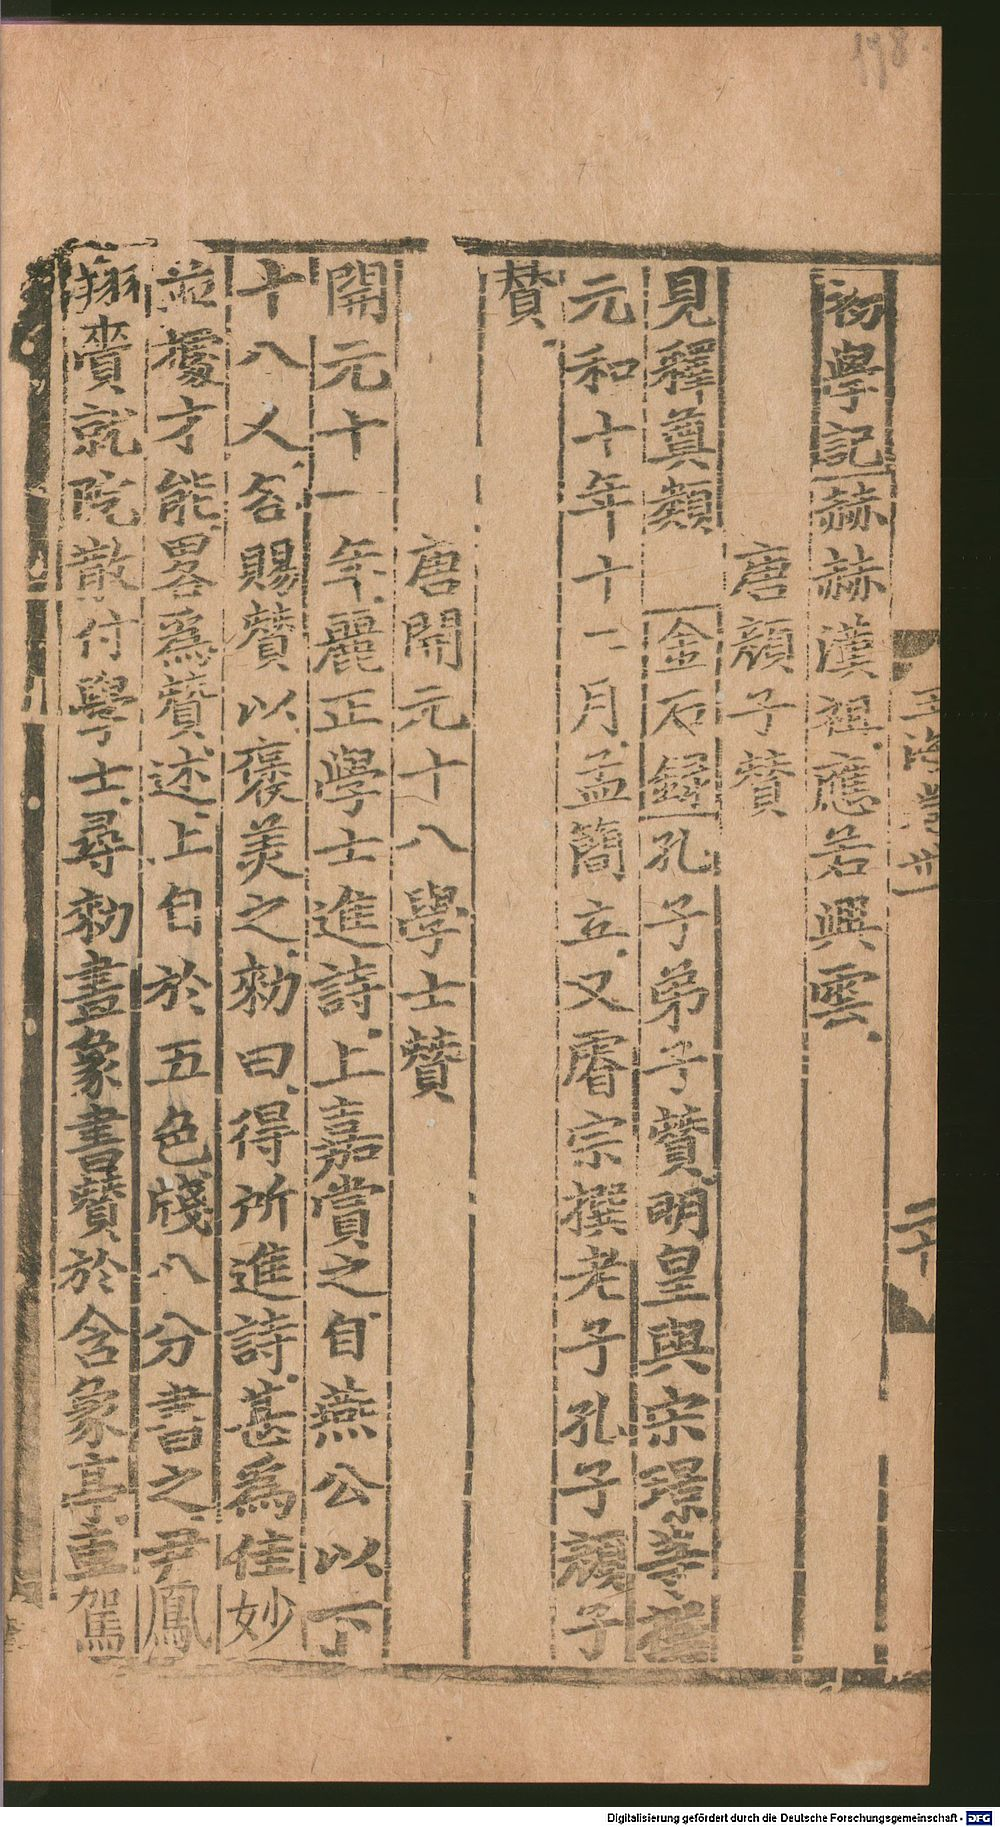 初學記赫赫漢祖應若興雲
唐顔子賛
見釋奠類 金石録孔子弟子賛明皇與宋璟等撰
元和十年十二月孟簡立又睿宗撰老子孔子顔子
賛
唐開元十八學士賛
開元十一年麗正學士進詩上嘉賞之自燕公以下
十八人各賜賛以褒美之勑曰得所進詩甚爲佳妙
並據才能畧爲賛述上自於五色牋八分書之尹鳳
翔賷就院散付學士尋勑畫象書賛於含象亭車駕
二十
198
Digitalisierung gefördert durch die Deutsche Forschungsgemeinschaft - DFG